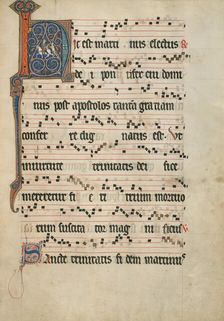 Hic est marti nus electus
dei pontifex cui domi
nus post apostolos tantā gratiam
confer re dig natus est. Ut
in uirtute trinitatis dei fice
mereretur fi e ri trium mortuo
rum suscita tor mag ni ficus
Sancte trinitatis fidem martinus